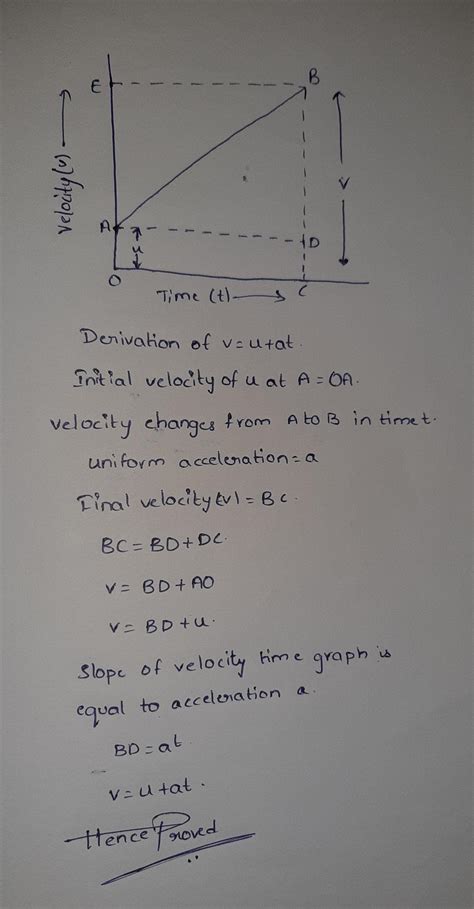 E
B
Velocity (v)
V
A
u
D
O
Time (t)
C
Derivation of v=u+at.
Initial velocity of u at A = OA.
Velocity changes from A to B in time t.
uniform acceleration = a
Final velocity (v) = BC.
BC = BD + DC.
v = BD + AO
v = BD + u.
Slope of velocity time graph is
equal to acceleration a.
BD = at
v = u+at.
Hence Proved